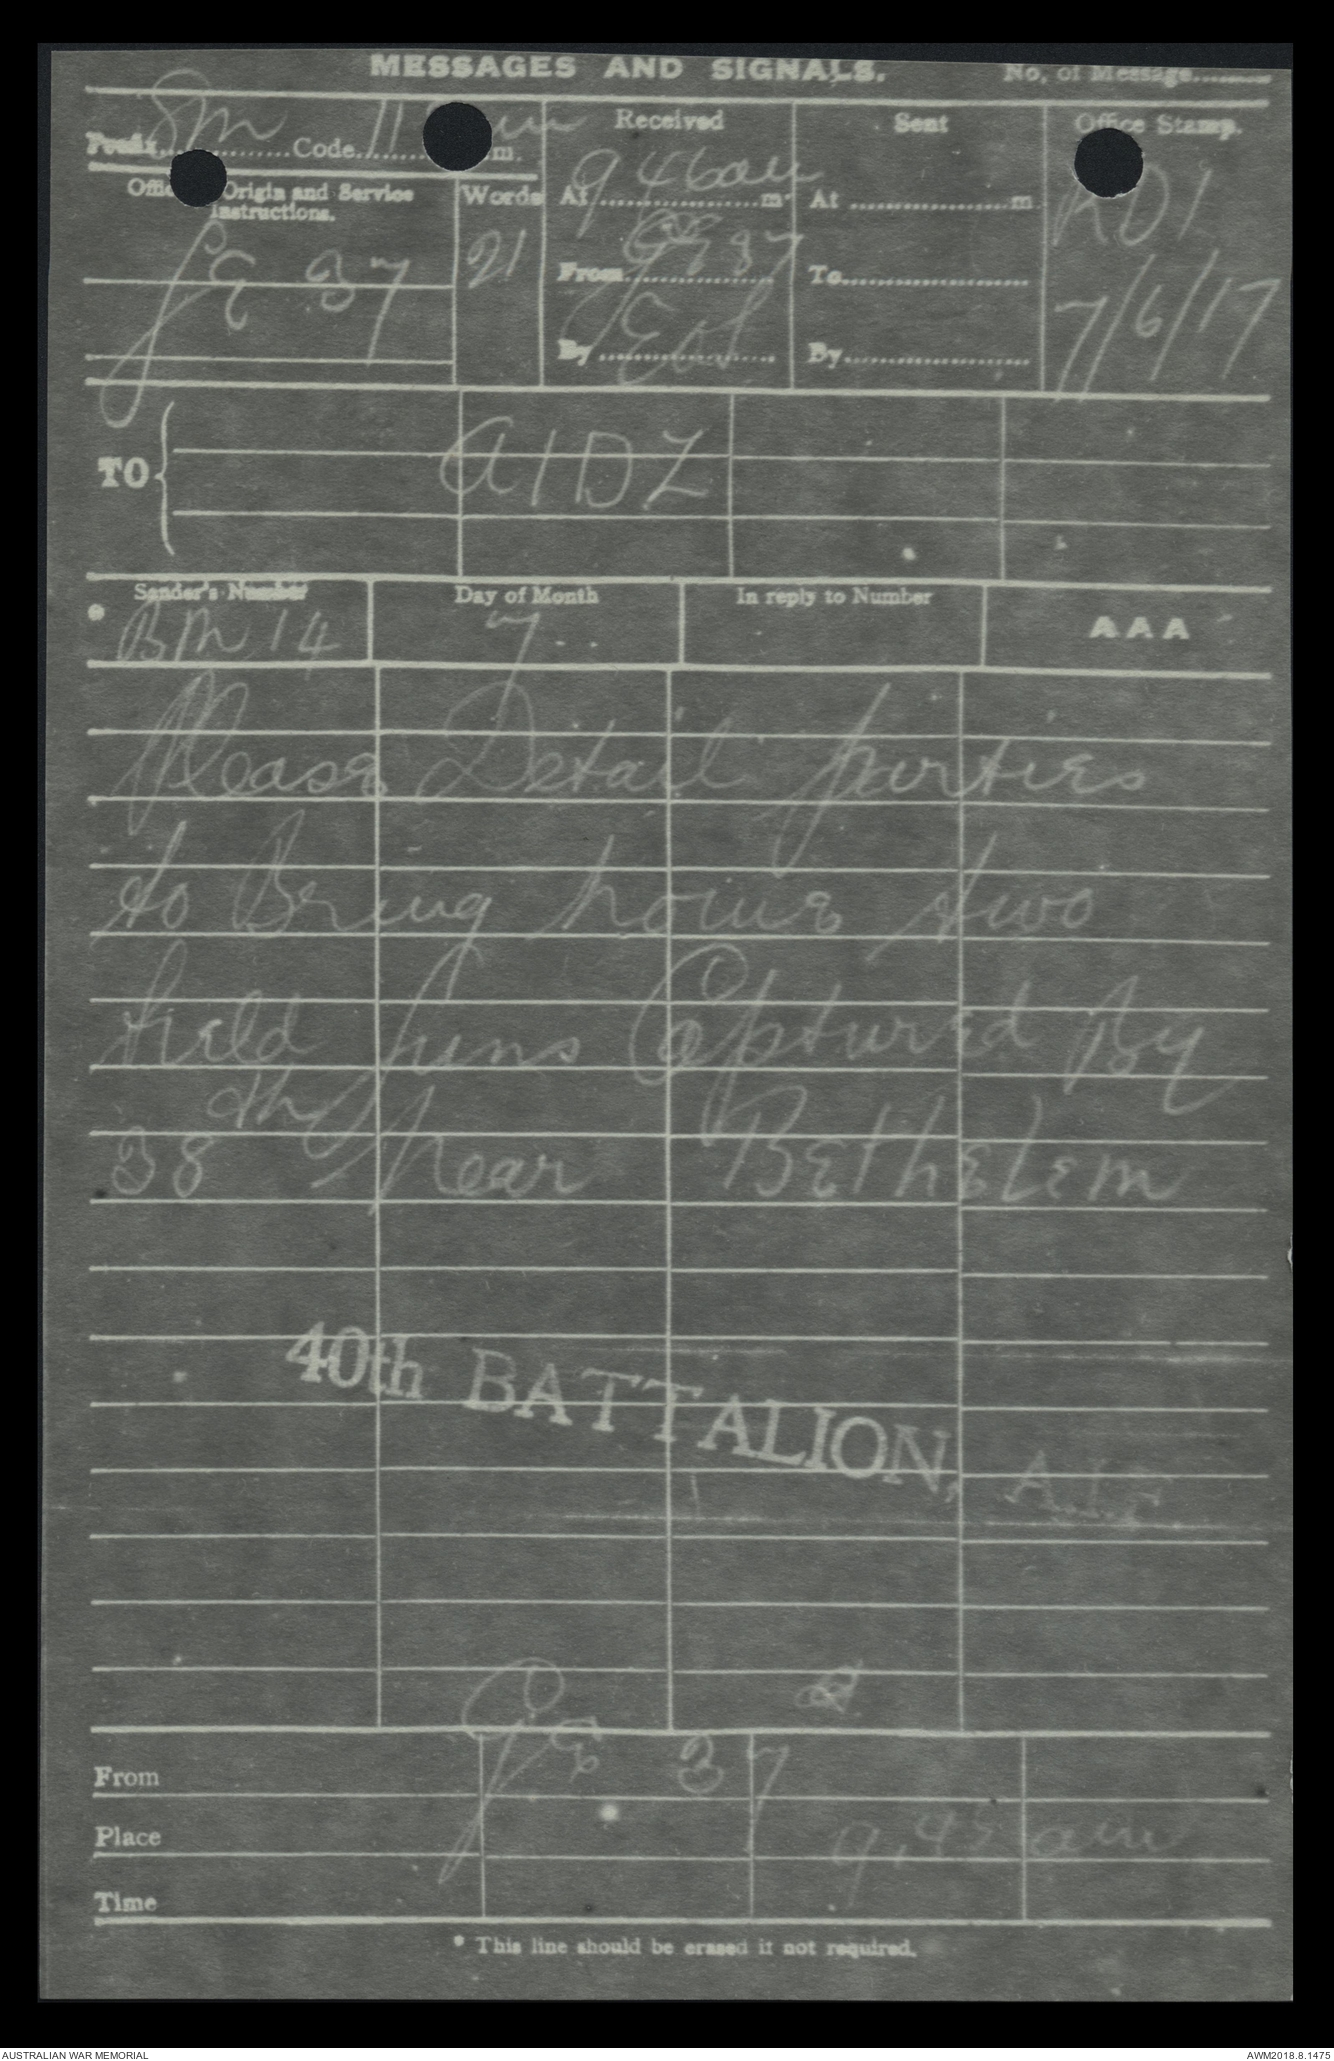 MESSAGES AND SIGNALS. No. of Message.........
Prefix Sm Code 11 m.
Received
Sent
Office Stamp.
Office Origin and Service
Instructions.
Words
At 9 46am m.
At ................. m.
RD1
JE 37
21
From JE 37
To..................
7/6/17
By
By..................
TO
A1DZ
Sender's Number
Day of Month
In reply to Number
AAA
* BM 14
7
Please Detail parties
to Bring home two
field Guns Captured By
38th Near Bethelem
40th BATTALION, A.I.F.
From JE 37
Place
9.45 am
Time
* This line should be erased if not required.
AUSTRALIAN WAR MEMORIAL
AWM2018.8.1475